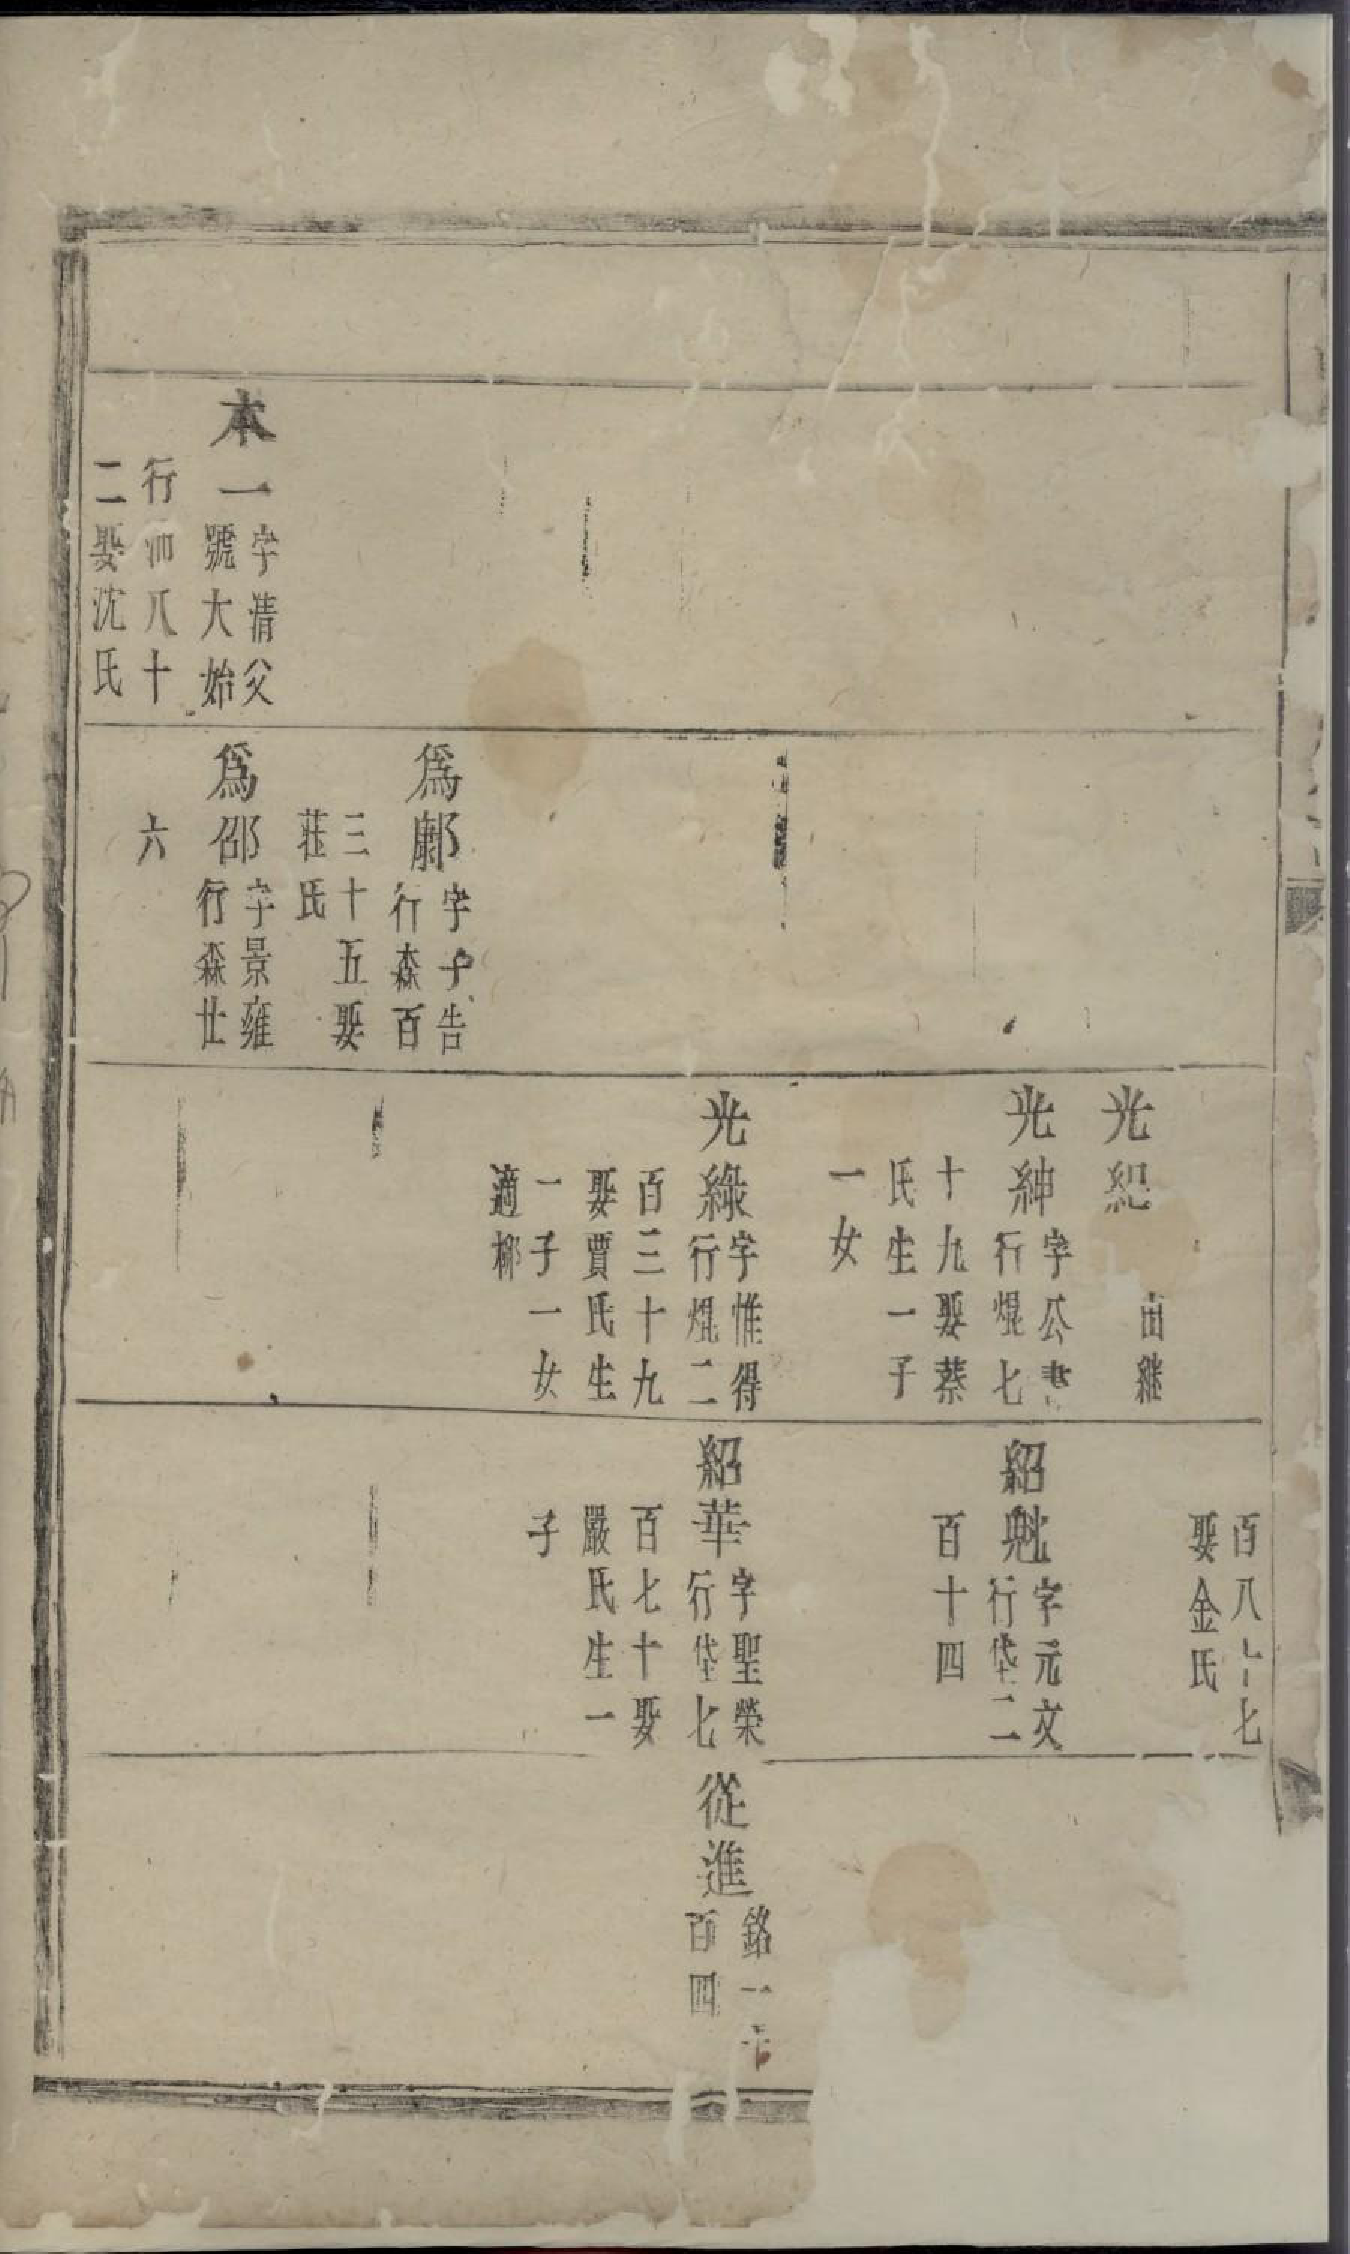 本一
字清父
號大始
行 八十
二娶沈氏
爲鄌
字子告
行森百
三十五娶
莊氏
爲邵
字景雍
行森廿
六
光
繼
光紳
字公
行焜七
十九娶蔡
氏生一子
一女
光綠
字惟得
行焜二
百三十九
娶賈氏生
一子一女
適梛
百八十七
娶金氏
紹魁
字元文
行垈二
百十四
紹華
字聖榮
行垈七
百七十娶
嚴氏生一
子
從進
銘一千
百四